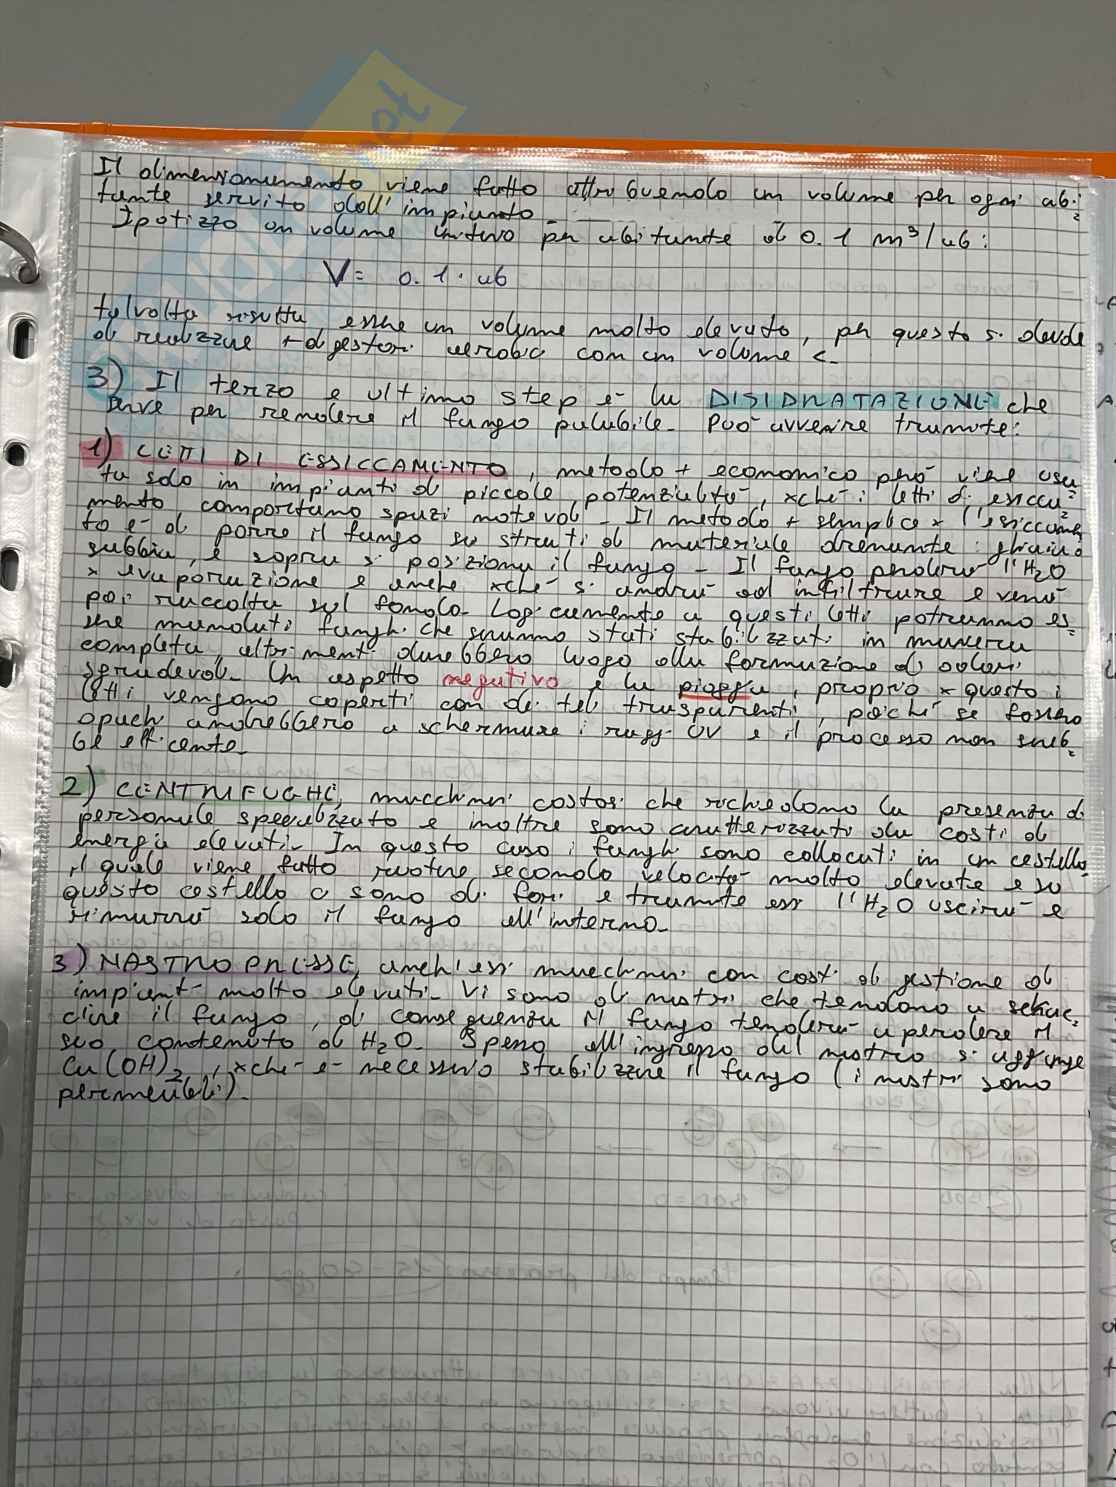 Il dimensionamento viene fatto attribuendo un volume per ogni abi=
tante servito dall'impianto.
Ipotizzo un volume unitario per abitante di 0.1 m³/ab:
V= 0.1 · ab
talvolta risulta essere un volume molto elevato, per questo si decide
di realizzare + digestori aerobici con un volume <.
3) Il terzo e ultimo step è la DISIDRATAZIONE che
serve per rendere il fango palabile. Può avvenire tramite:
1) LETTI DI ESSICCAMENTO, metodo + economico però viene usa=
to solo in impianti di piccole potenzialità, xchè i letti di essicca=
mento comportano spazi notevoli. Il metodo + semplice x l'essiccamen
to è di porre il fango su strati di materiale drenante: ghiaia o
sabbia, e sopra si posiziona il fango. Il fango perderà l'H2O
x evaporazione e anche xchè si andrà ad infiltrare e verrà
poi raccolta sul fondo. Logicamente a questi letti potranno es=
sere mandati fanghi che saranno stati stabilizzati in maniera
completa, altrimenti darebbero luogo alla formazione di odori
sgradevoli. Un aspetto negativo è la pioggia, proprio x questo i
letti vengono coperti con dei teli trasparenti, poichè se fossero
opachi andrebbero a schermare i raggi UV e il processo non sareb=
be efficente.
2) CENTRIFUGHE, macchinari costosi che richiedono la presenza di
personale specializzato e inoltre sono caratterizzati da costi di
energia elevati. In questo caso i fanghi sono collocati in un cestello,
il quale viene fatto ruotare secondo velocità molto elevate e su
questo cestello ci sono dei fori e tramite essi l'H2O uscirà e
rimarrà solo il fango all'interno.
3) NASTRO PRESSE, anch'essi macchinari con costi di gestione di
impianti molto elevati. Vi sono dei nastri che tendono a schiac=
ciare il fango, di conseguenza il fango tenderà a perdere il
suo contenuto di H2O. Spesso all'ingresso del nastro si aggiunge
Ca(OH)2, xchè è necessario stabilizzare il fango (i nastri sono
permeabili).